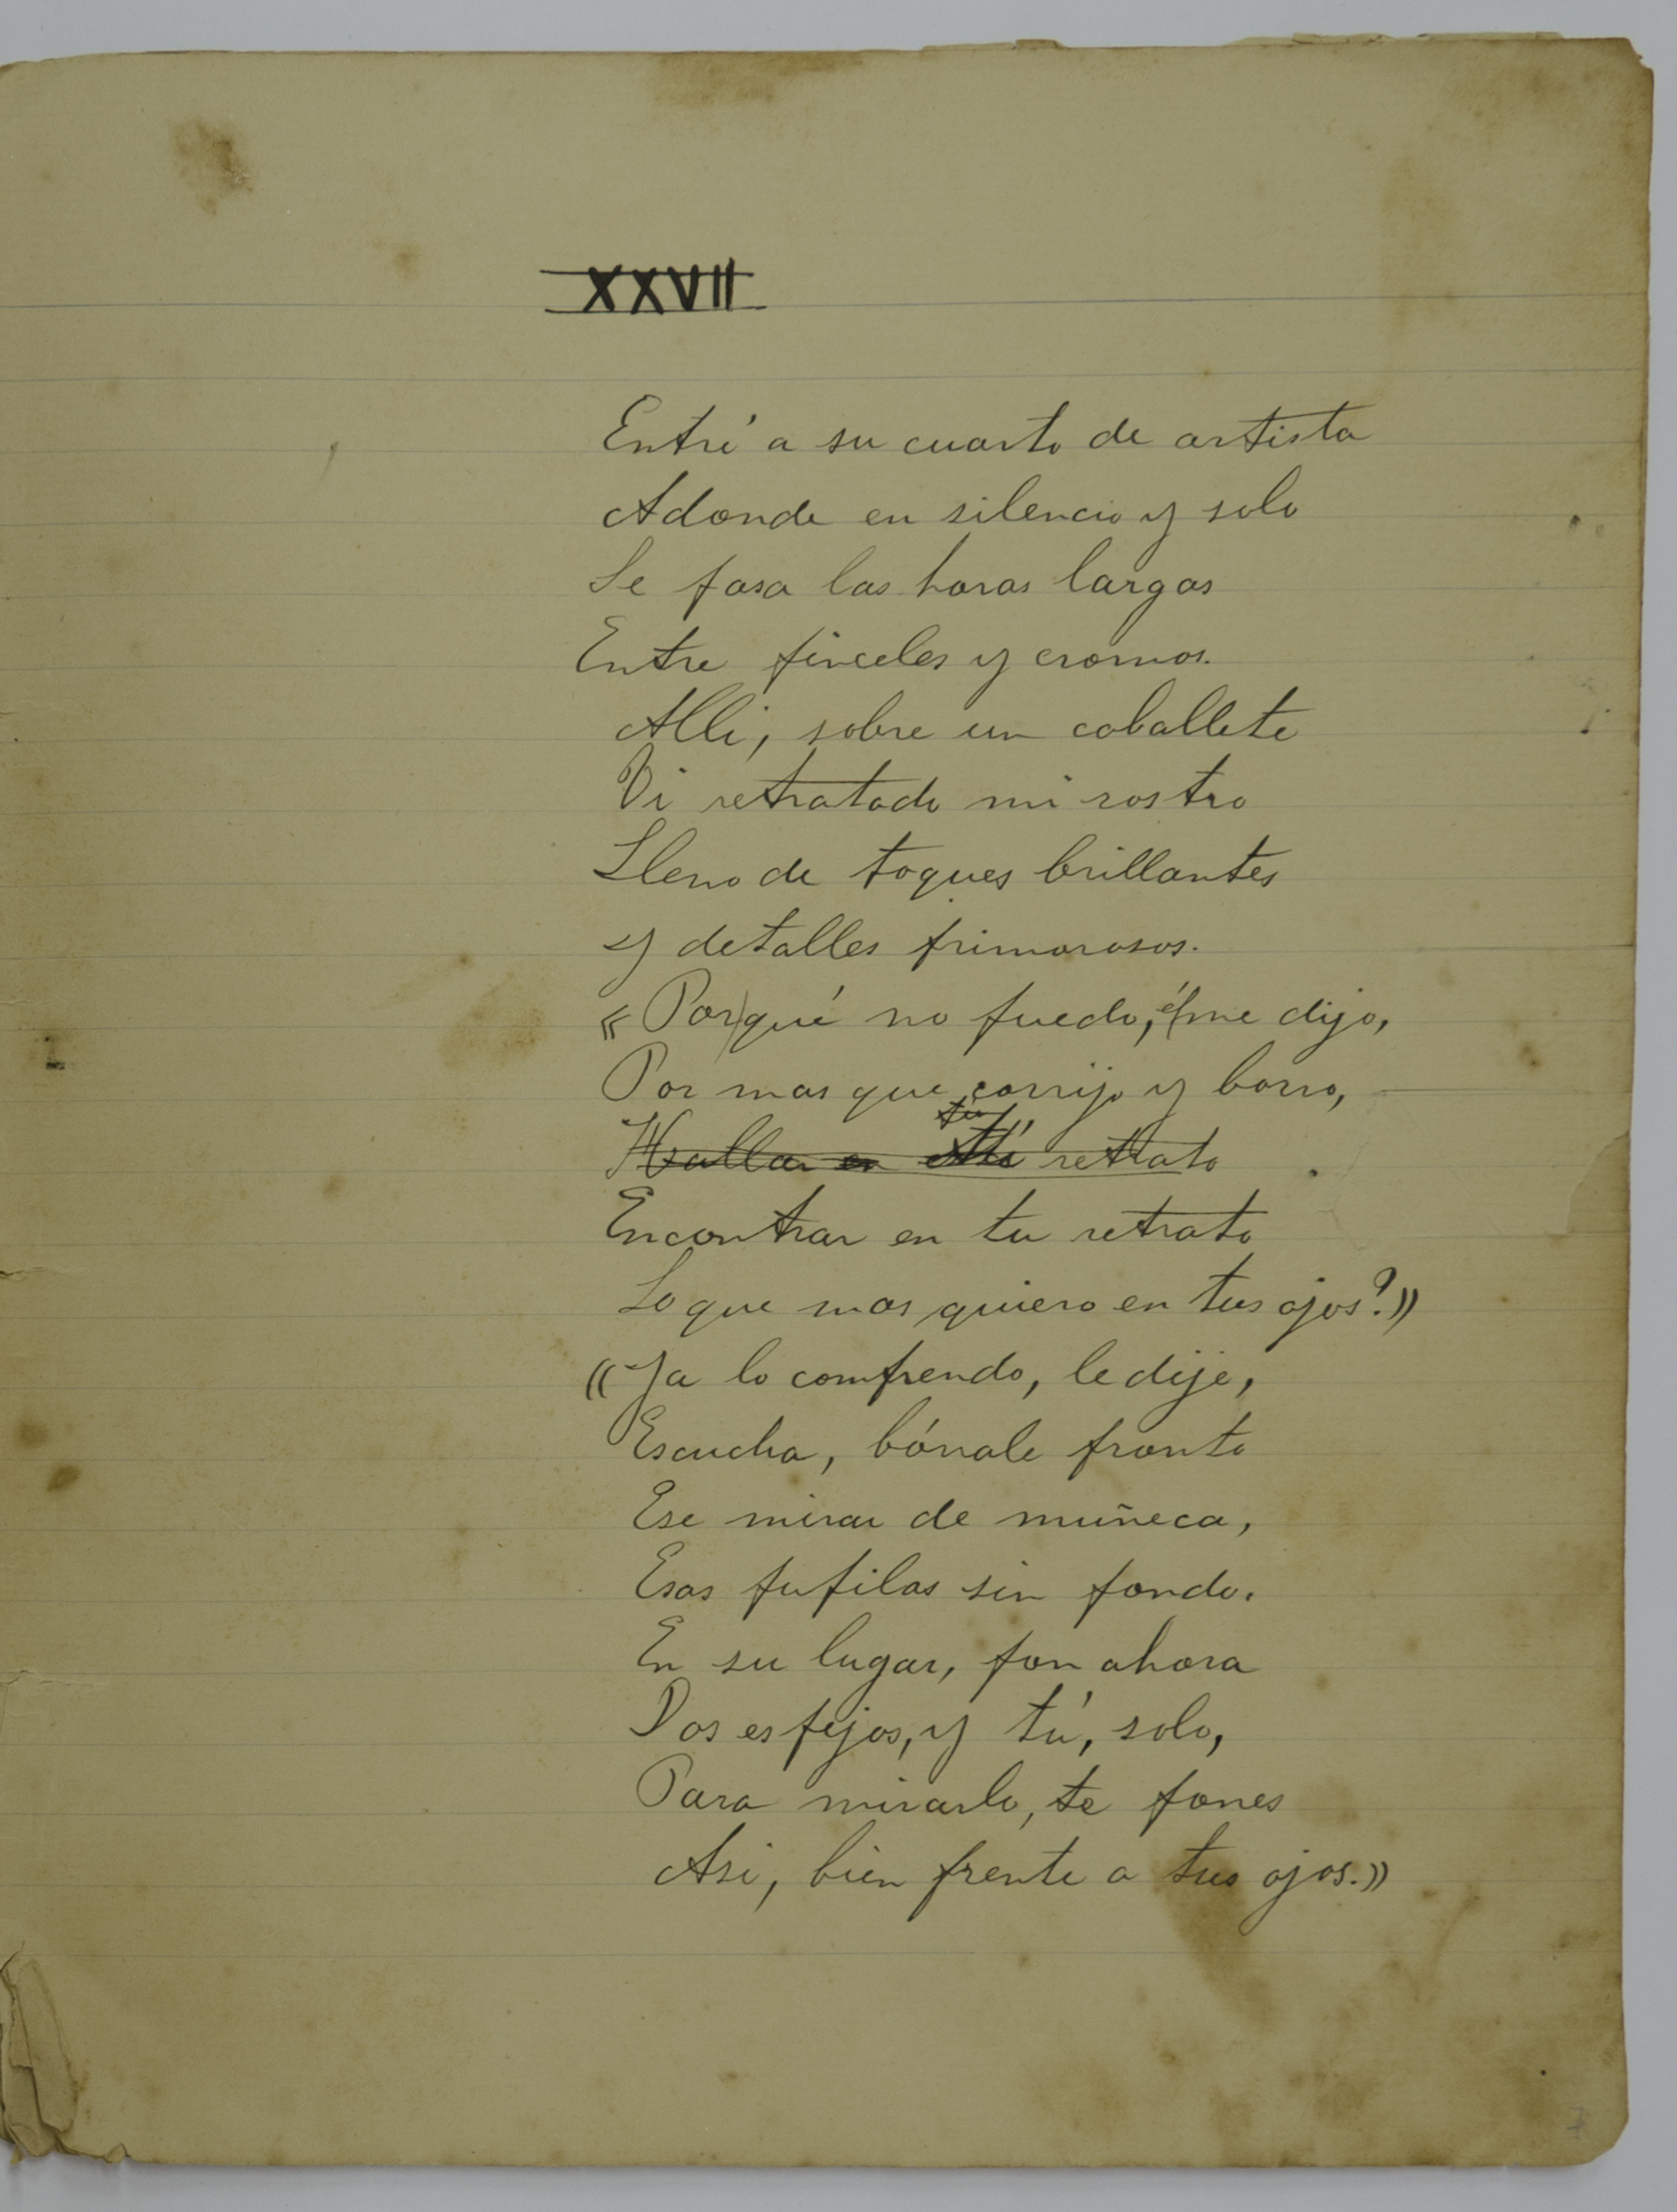 XXVII
Entré a su cuarto de artista
Adonde en silencio y solo
Se pasa las horas largas
Entre pinceles y cromos.
Alli, sobre un caballete
Vi retratado mi rostro
Lleno de toques brillantes
Y detalles primorosos.
« Por qué no puedo, él me dijo,
Por mas que corrijo y borro,
tu
Hallar en retrato
Encontrar en tu retrato
Lo que mas quiero en tus ojos?»
«Ya lo comprendo, le dije,
Escucha, bórrale pronto
Ese mirar de muñeca,
Esas pupilas sin fondo.
En su lugar, pon ahora
Dos espejos, y tú, solo,
Para mirarlo, te pones
Asi, bien frente a tus ojos.»
7